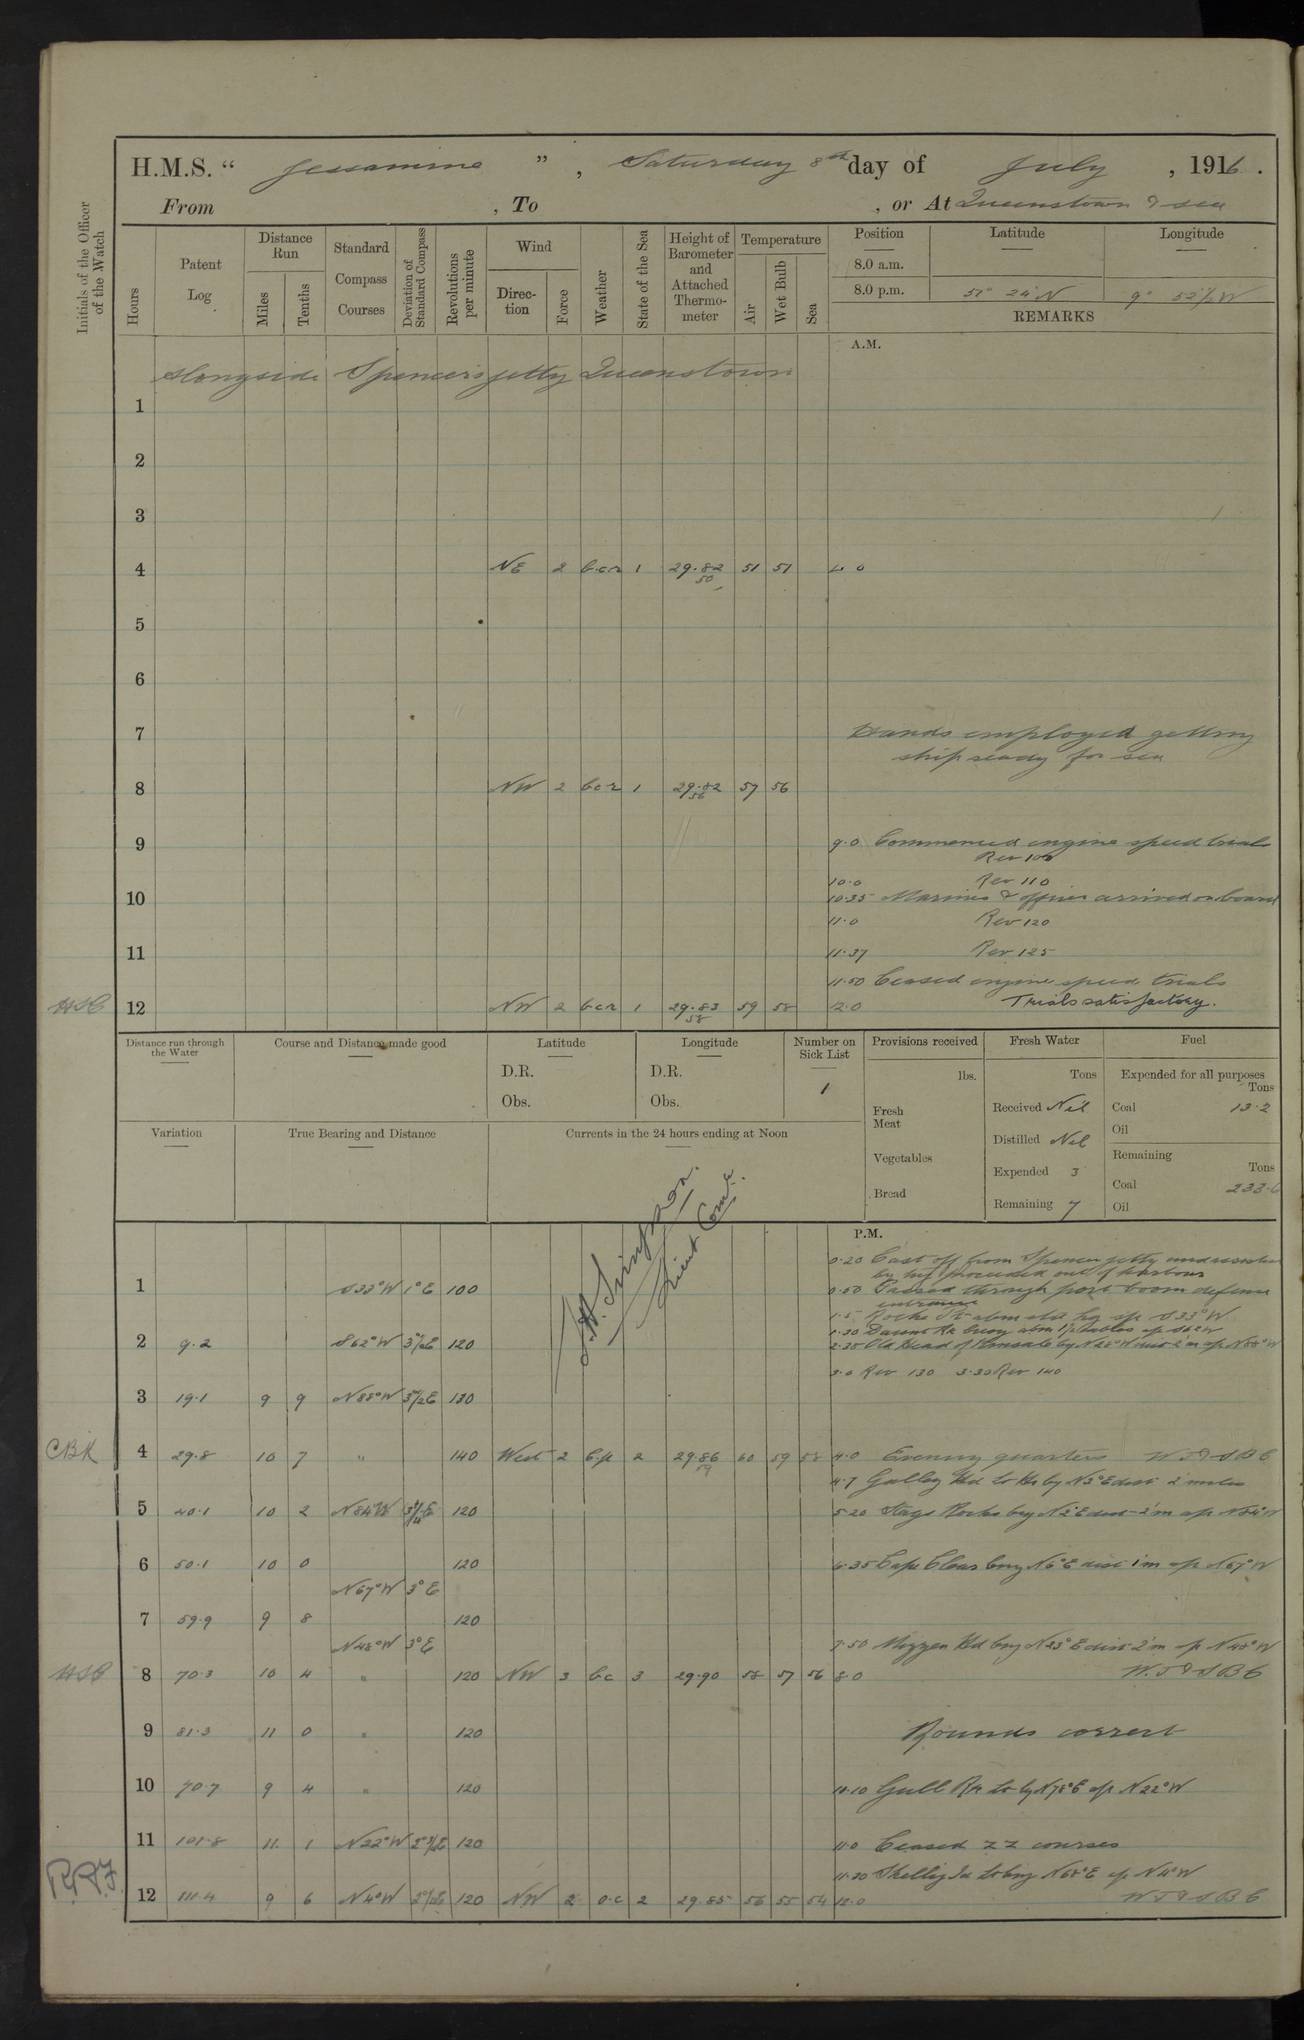 H.M.S. " Jessamine ", Saturday 8th day of July, 1916.
From , To , or At Queenstown & sea
Initials of the Officer of the Watch
Hours
Patent Log
Distance Run
Miles
Tenths
Standard Compass Courses
Deviation of Standard Compass
Revolutions per minute
Wind
Direc-tion
Force
Weather
State of the Sea
Height of Barometer and Attached Thermo-meter
Temperature
Air
Wet Bulb
Sea
Position Latitude Longitude
8.0 a.m.
8.0 p.m. 51° 24' N 9° 52½ W
REMARKS
A.M.
Alongside Spencers jetty Queenstown
1
2
3
4 NE 2 b.c.r 1 29.82 50 51 51 4 0
5
6
7 Hands employed getting
ship ready for sea
8 NW 2 b c r 1 29.82 56 57 56
9 9.0 Commenced engine speed trials
Rev 100
10.0 Rev 110
10 10.35 Marines & officer arrived on board
11.0 Rev 120
11 11.37 Rev 125
11.50 Ceased engine speed trials
12 NW 2 b.c.r 1 29.83 58 59 58 12.0 Trials satisfactory.
Distance run through the Water
Course and Distance made good
Latitude
D.R.
Obs.
Longitude
D.R.
Obs.
Number on Sick List
1
Provisions received
lbs.
Fresh Meat
Vegetables
Bread
Fresh Water
Tons
Received Nil
Distilled Nil
Expended 3
Remaining 7
Fuel
Expended for all purposes
Tons
Coal 13.2
Oil
Remaining
Tons
Coal 233.6
Oil
Variation
True Bearing and Distance
Currents in the 24 hours ending at Noon
Simpson.
Lieut Comr.
P.M.
0.20 Cast off from Spencer jetty and assisted
by tug proceeded out of harbour
1 S33°W 1°E 100 0.50 Passed through port boom defence
entrance
1.5 Roche Pt abm S33°W
1.30 Daunt Rk buoy abm S62W
2 9.2 S62°W 3½E 120 2.35 Old Head of Kinsale N88°W
3.0 Rev 130 3.30 Rev 140
3 19.1 9 9 N88°W 3½E 130
CBK 4 29.8 10 7 " 140 West 2 b.p 2 29.86 59 60 59 58 4.0 Evening quarters W.T & S B C
4.7 Galley Hd Lt Ho by N3°E dist 2 miles
5 40.1 10 2 N84W 120 5.20 Stags Rocks brg N2°E dist 2'm a/c N84°W
6 50.1 10 0 120 6.35 Cape Clear brg N6°E dist 1'm a/c N67°W
N67°W 3°E
7 59.9 9 8 120
N48°W 3°E 7.50 Mizzen Hd brg N33°E dist 2'm a/c N48°W
8 70.3 10 4 " 120 NW 3 b.c 3 29.90 58 57 56 8.0 W.T & S B C
9 81.3 11 0 " 120 Rounds correct
10 90.7 9 4 " 120 10.10 Gull Rk Lt by N78°E a/c N22°W
11 101.8 11 1 N22°W 120 11.0 Ceased ZZ courses
11.30 Skellig Is Lt brg N68°E a/c N4°W
12 111.4 9 6 N4°W 120 NW 2 o.c 2 29.85 56 55 54 12.0 W T & S B C